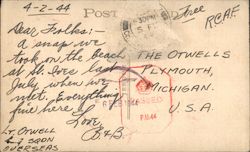 4-2-44
POST
Free
R.C.A.F.
Dear Folks:-
a snap we
took on the beach
at St. Ives last
July when we
met. Everything
fine here
Love,
B&B.
THE OTWELLS
PLYMOUTH,
MICHIGAN.
U.S.A.
LT. OTWELL
SQDN
OVERSEAS